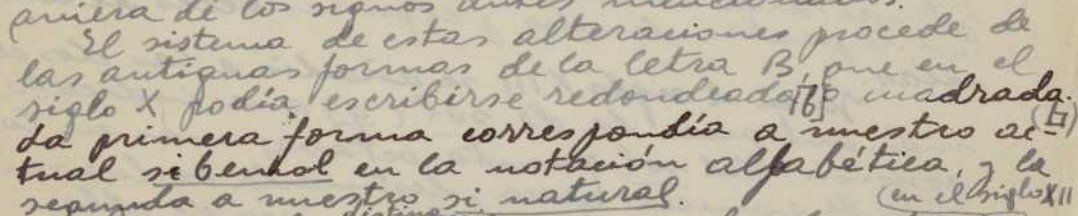 manera de los signos antes mencionados.
El sistema de estas alteraciones procede de
las antiguas formas de la letra B, que en el
siglo X podía escribirse redondeada [b] o cuadrada.
La primera forma correspondía a nuestro ac- (♮)
tual si bemol en la notación alfabética, y la
segunda a nuestro si natural. (en el siglo XII